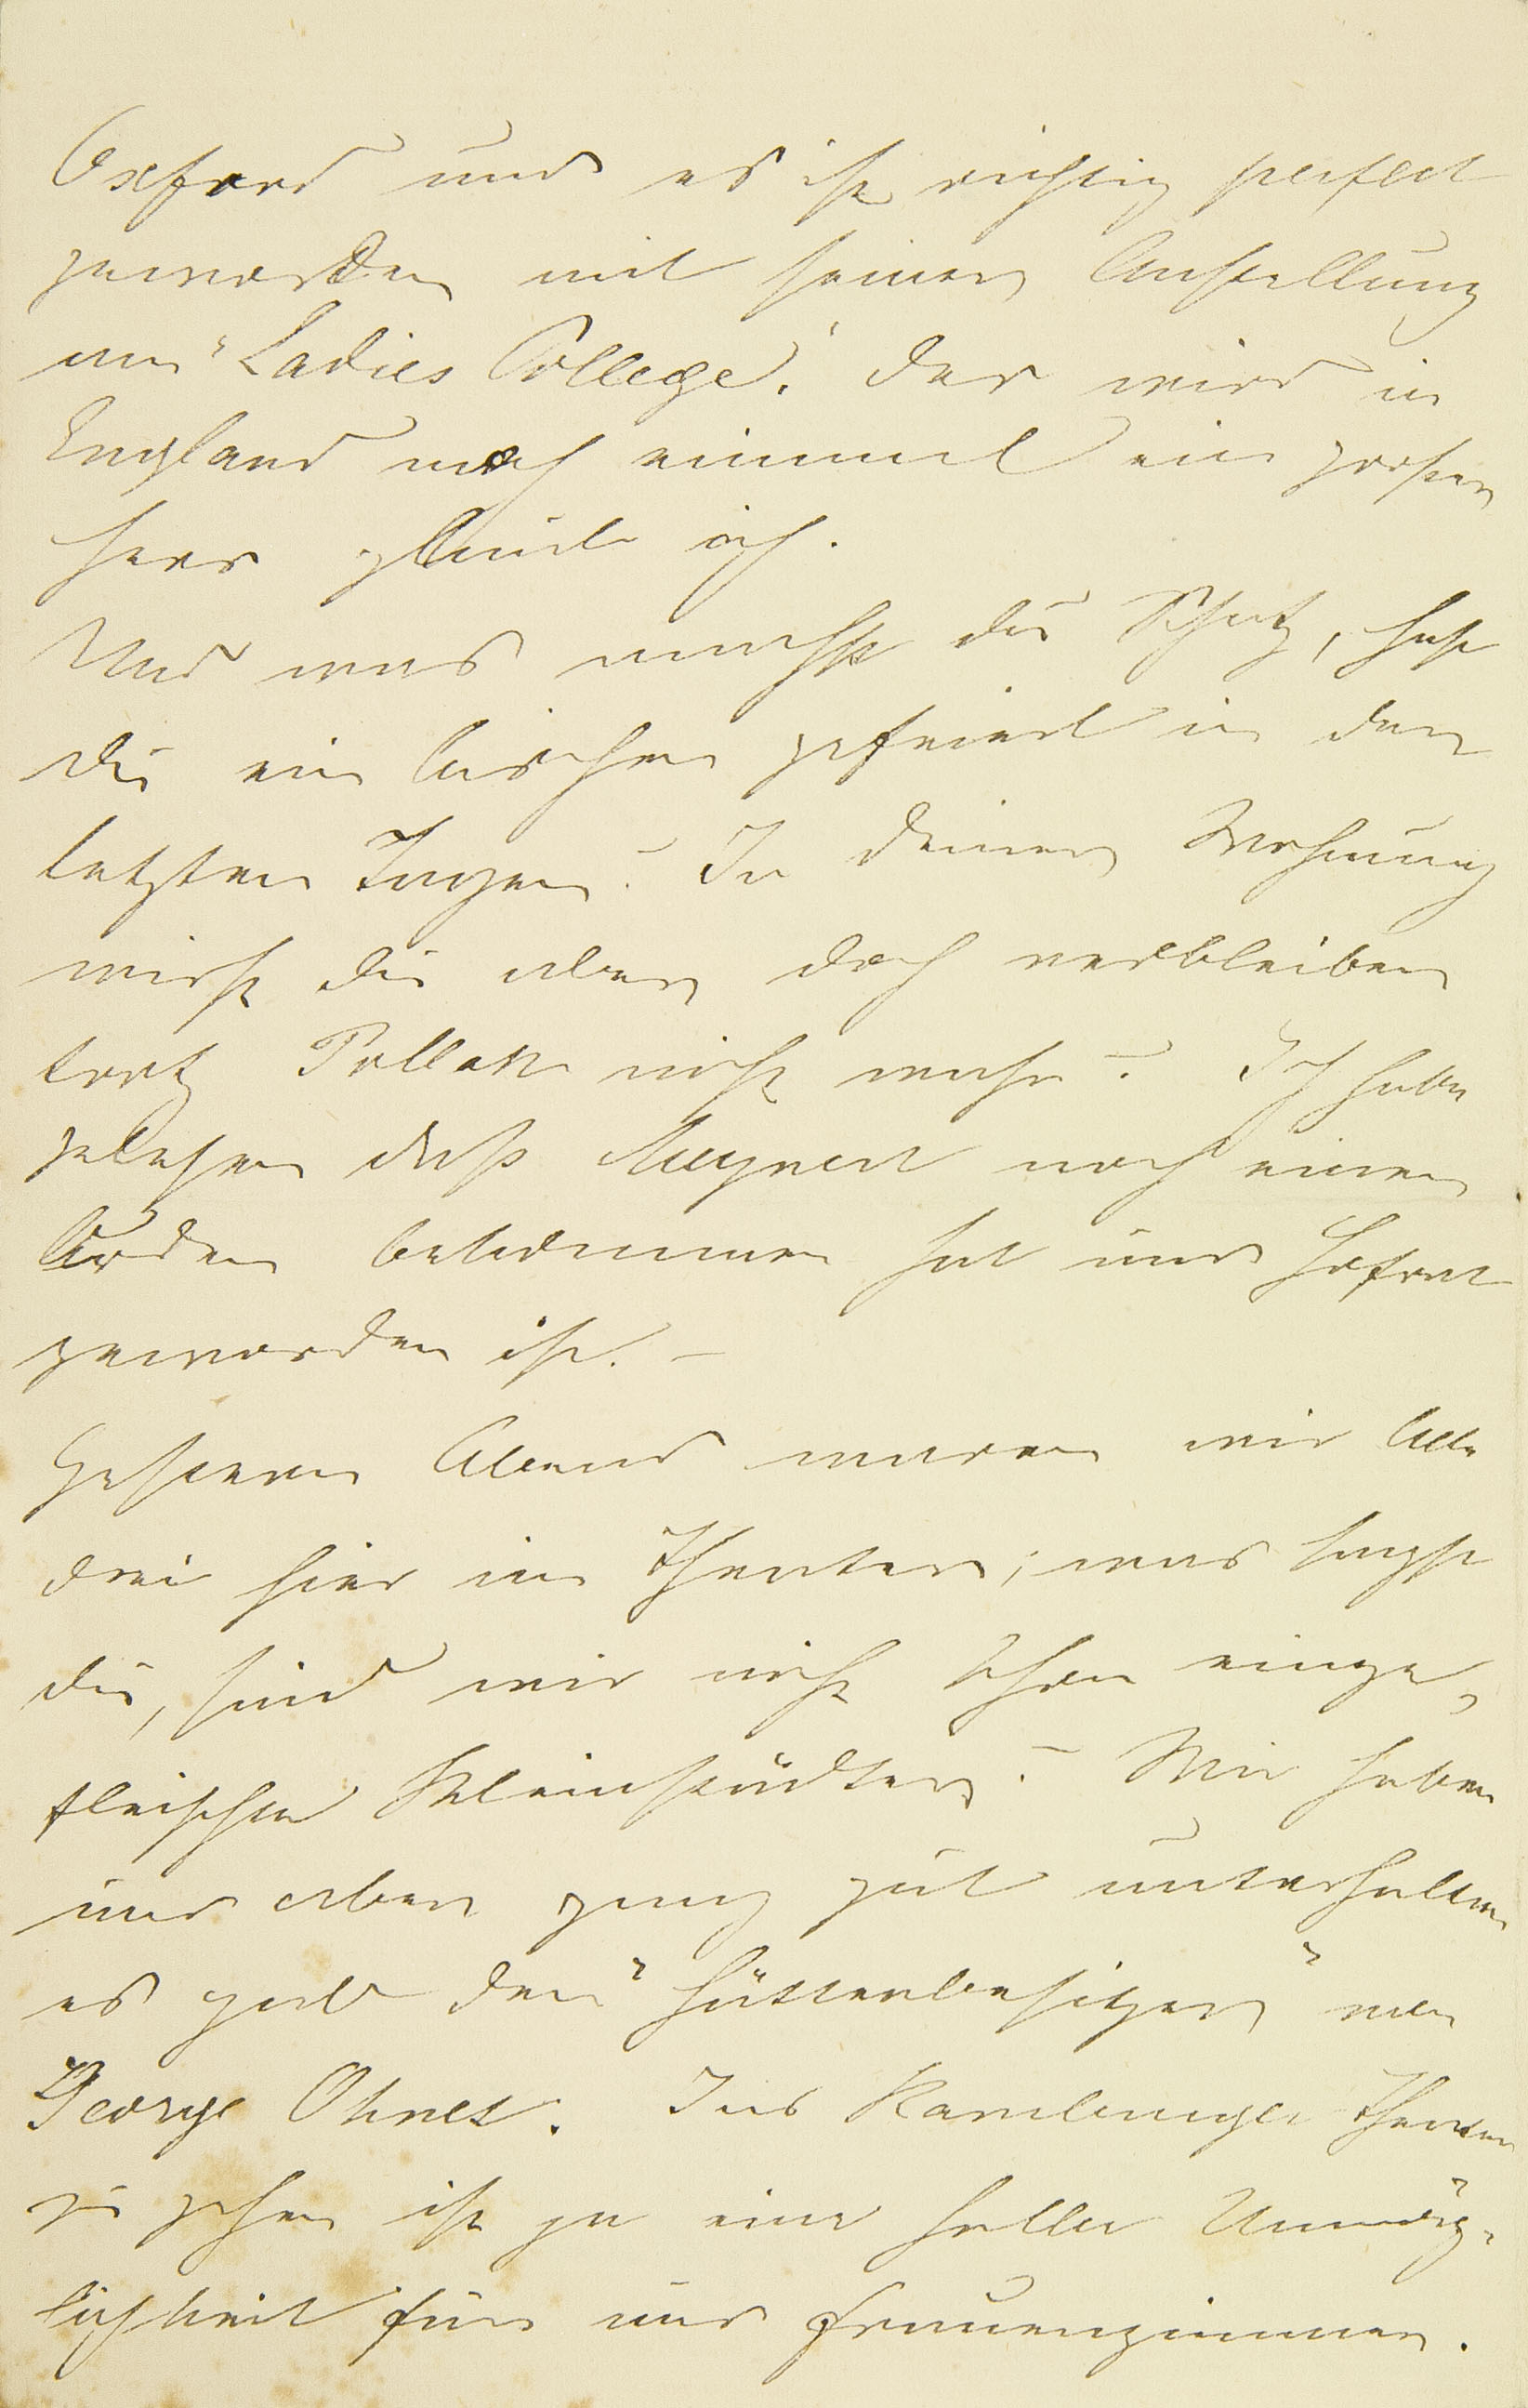 Oxford und es ist richtig perfect
geworden mit seiner Anstellung
am "Ladies College". Der wird in
England noch einmal ein großer
Herr glaub ich.
Und was machst du Schatz, hast
du ein bischen gefeiert in den
letzten Tagen? In deiner Wohnung
wirst du aber doch verbleiben
trotz Pollak nicht wahr? Ich habe
gelesen daß Meynert noch einen
Orden bekommen hat und Hofrat
geworden ist. –
Gestern Abend waren wir Alle
drei hier im Theater; was sagst
du, sind wir nicht schon einge-
fleischte Kleinstädter? Wir haben
uns aber ganz gut unterhalten
es gab den "Hüttenbesitzer" von
George Ohnet. Ins Hamburger Theater
zu gehen ist ja eine halbe Unmög-
lichkeit für uns Frauenzimmer.